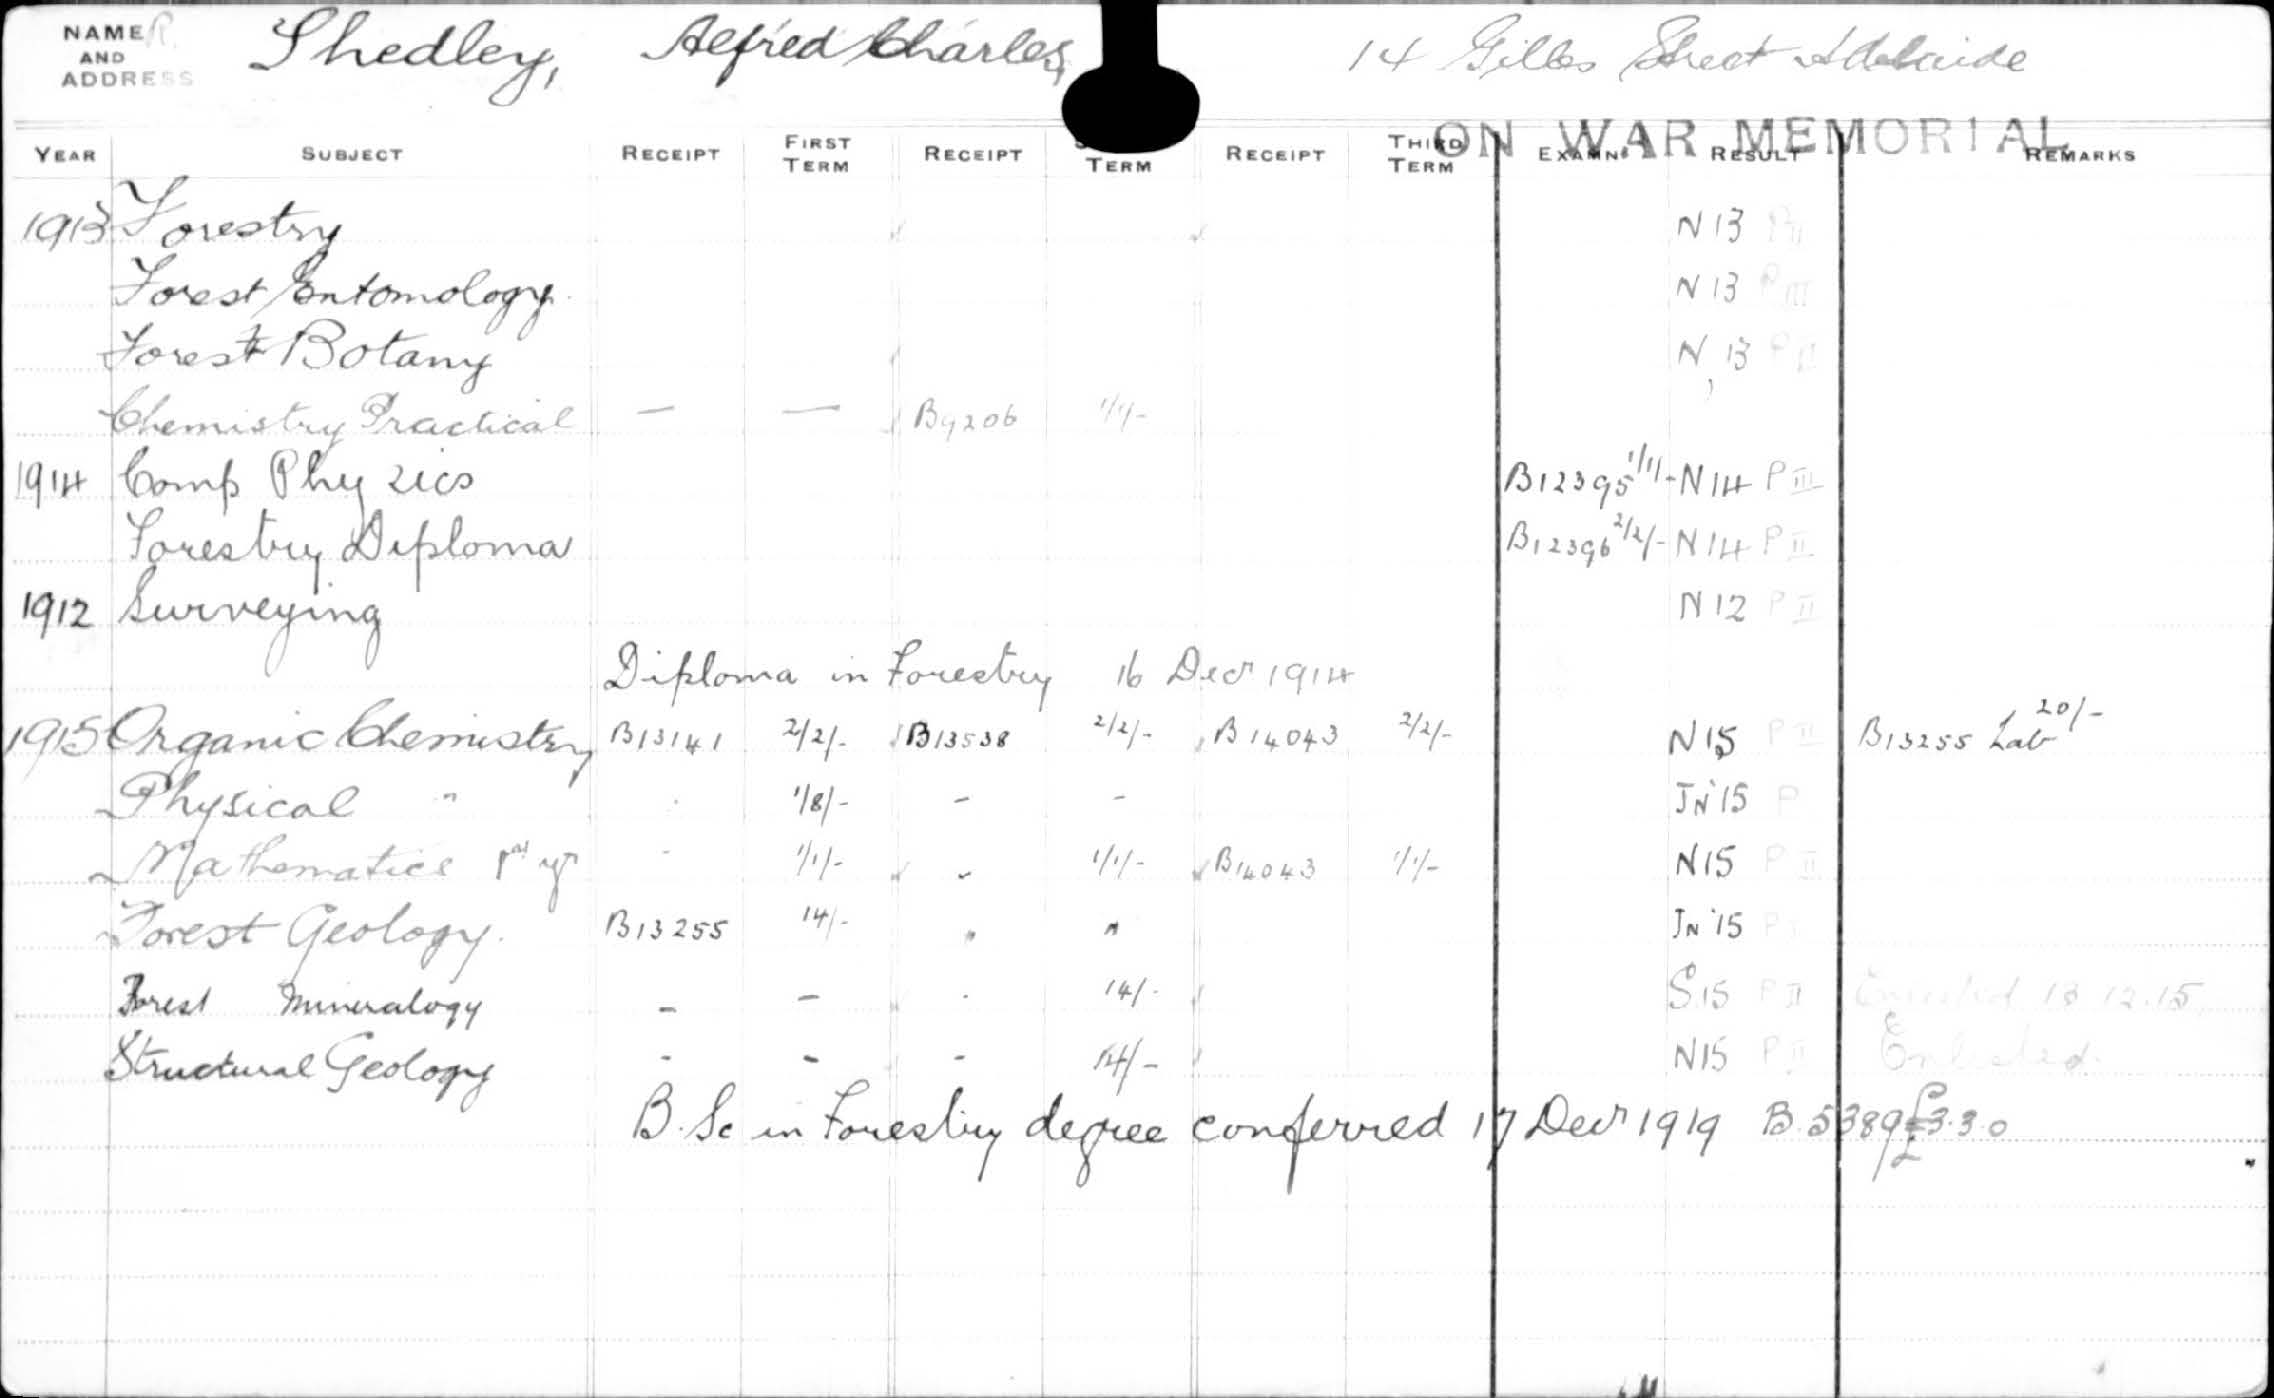 NAME AND ADDRESS Shedley, Alfred Charles 14 Gilles Street Adelaide
ON WAR MEMORIAL
YEAR SUBJECT RECEIPT FIRST TERM RECEIPT TERM RECEIPT THIRD TERM EXAMN. RESULT REMARKS
1913 Forestry N 13 P II
Forest Entomology. N 13 P III
Forest Botany N 13 P II
Chemistry Practical — — B9206 1/1/-
1914 Comp Physics B12395 1/1/- N 14 P III
Forestry Diploma B12396 2/2/- N 14 P II
1912 Surveying N 12 P II
Diploma in Forestry 16 Decr 1914
1915 Organic Chemistry B13141 2/2/- B13538 2/2/- B14043 2/2/- N 15 P II B13255 Lab 20/-
Physical " 1/8/- - - JN '15 P
Mathematics 1st yr - 1/1/- - 1/1/- B14043 1/1/- N15 P II
Forest Geology. B13255 14/- " " JN '15 P
Forest Mineralogy - - - 14/- S.15 P II Enlisted 13.12.15.
Structural Geology - - - 14/- N15 P II Enlisted.
B.Sc in Forestry degree conferred 17 Decr 1919 B.5389 £3.3.0